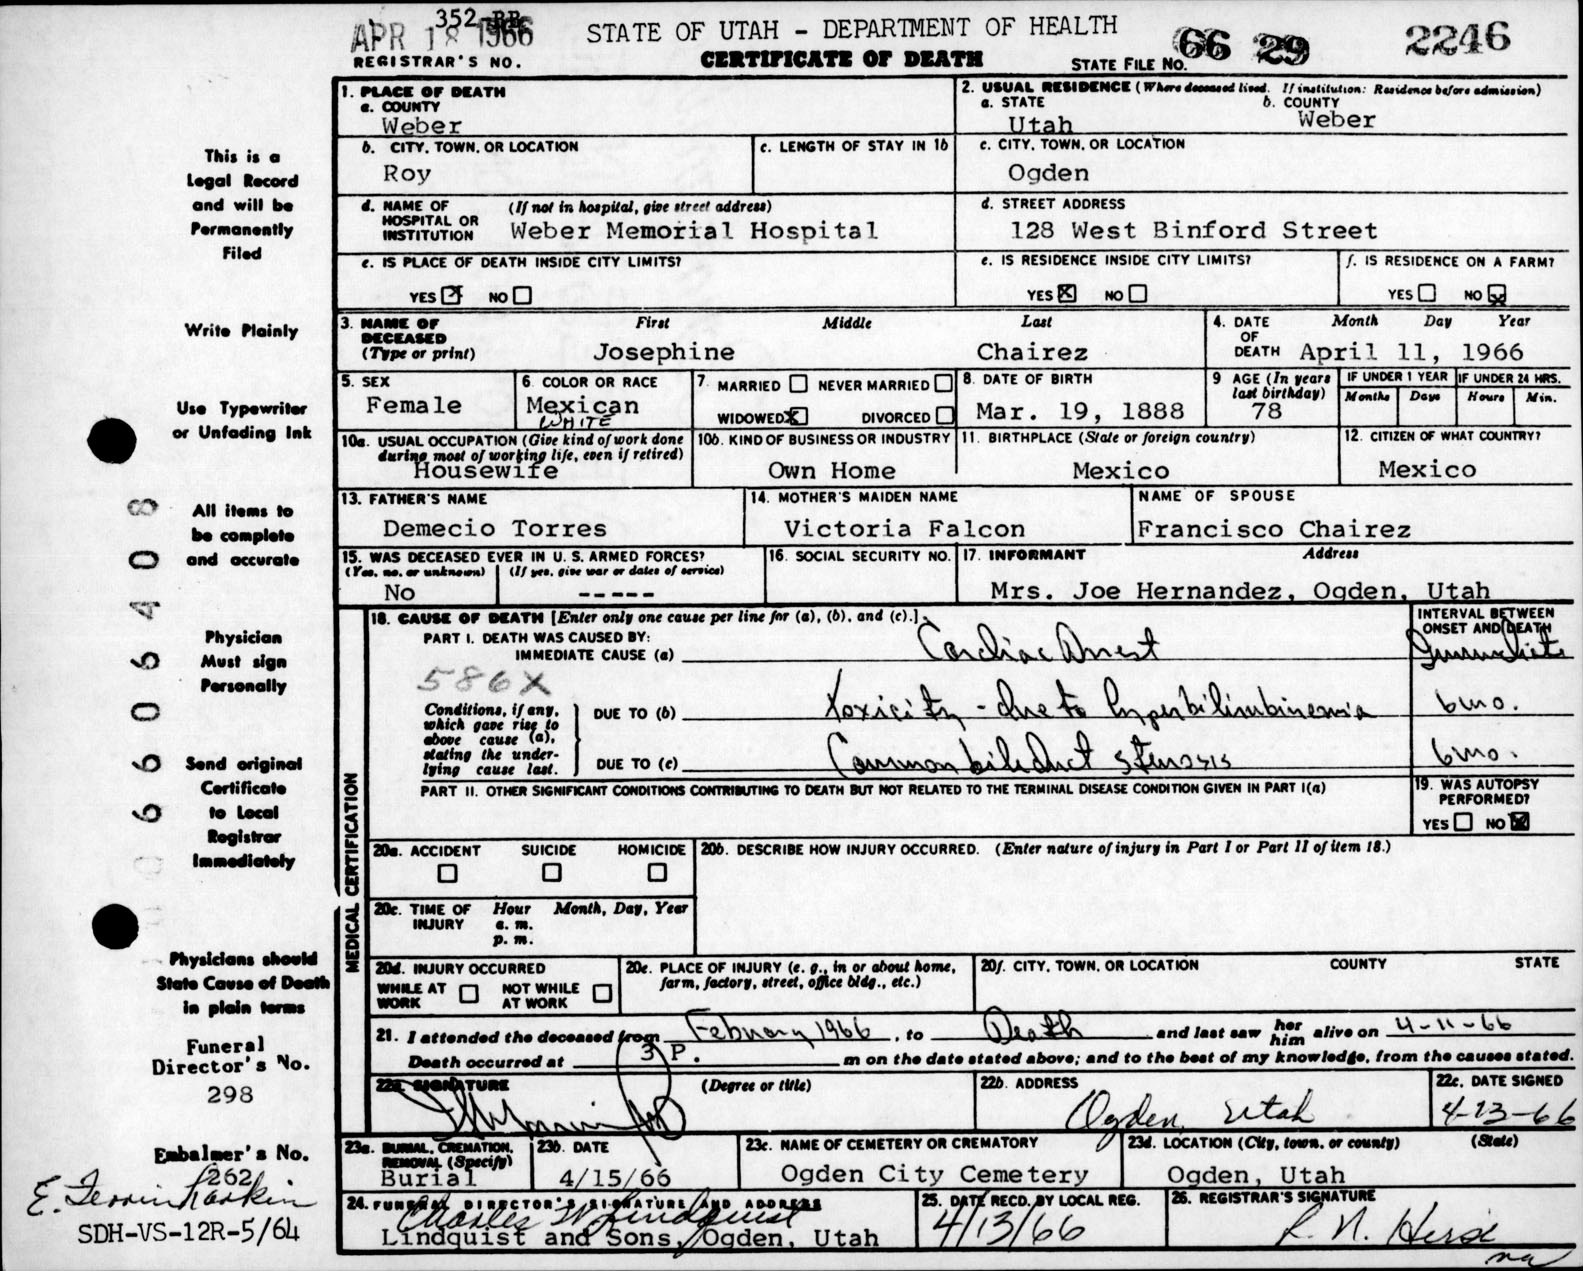 352 BB
APR 18 1966
STATE OF UTAH - DEPARTMENT OF HEALTH
REGISTRAR'S NO.
CERTIFICATE OF DEATH
STATE FILE NO. 66 29 2246
This is a
Legal Record
and will be
Permanently
Filed
Write Plainly
Use Typewriter
or Unfading Ink
All items to
be complete
and accurate
Physician
Must sign
Personally
Send original
Certificate
to Local
Registrar
Immediately
Physicians should
State Cause of Death
in plain terms
Funeral
Director's No.
298
Embalmer's No.
262
SDH-VS-12R-5/64
1. PLACE OF DEATH
a. COUNTY
Weber
2. USUAL RESIDENCE (Where deceased lived. If institution: Residence before admission)
a. STATE b. COUNTY
Utah Weber
b. CITY, TOWN, OR LOCATION
Roy
c. LENGTH OF STAY IN 1b
c. CITY, TOWN, OR LOCATION
Ogden
d. NAME OF HOSPITAL OR INSTITUTION (If not in hospital, give street address)
Weber Memorial Hospital
d. STREET ADDRESS
128 West Binford Street
e. IS PLACE OF DEATH INSIDE CITY LIMITS?
YES X NO
e. IS RESIDENCE INSIDE CITY LIMITS?
YES X NO
f. IS RESIDENCE ON A FARM?
YES NO X
3. NAME OF DECEASED (Type or print) First Middle Last
Josephine Chairez
4. DATE OF DEATH Month Day Year
April 11, 1966
5. SEX
Female
6. COLOR OR RACE
Mexican
WHITE
7. MARRIED NEVER MARRIED
WIDOWED X DIVORCED
8. DATE OF BIRTH
Mar. 19, 1888
9 AGE (In years last birthday)
78
IF UNDER 1 YEAR
Months Days
IF UNDER 24 HRS.
Hours Min.
10a. USUAL OCCUPATION (Give kind of work done during most of working life, even if retired)
Housewife
10b. KIND OF BUSINESS OR INDUSTRY
Own Home
11. BIRTHPLACE (State or foreign country)
Mexico
12. CITIZEN OF WHAT COUNTRY?
Mexico
13. FATHER'S NAME
Demecio Torres
14. MOTHER'S MAIDEN NAME
Victoria Falcon
NAME OF SPOUSE
Francisco Chairez
15. WAS DECEASED EVER IN U. S. ARMED FORCES?
(Yes, no, or unknown) (If yes, give war or dates of service)
No -----
16. SOCIAL SECURITY NO.
17. INFORMANT Address
Mrs. Joe Hernandez, Ogden, Utah
MEDICAL CERTIFICATION
18. CAUSE OF DEATH [Enter only one cause per line for (a), (b), and (c).]
INTERVAL BETWEEN ONSET AND DEATH
PART I. DEATH WAS CAUSED BY:
IMMEDIATE CAUSE (a) Cardiac Arrest Immediate
586X
Conditions, if any, which gave rise to above cause (a), stating the underlying cause last.
DUE TO (b) toxicity - due to hyperbilirubinemia 6 mo.
DUE TO (c) Common bile duct stenosis 6 mo.
PART II. OTHER SIGNIFICANT CONDITIONS CONTRIBUTING TO DEATH BUT NOT RELATED TO THE TERMINAL DISEASE CONDITION GIVEN IN PART I(a)
19. WAS AUTOPSY PERFORMED?
YES NO X
20a. ACCIDENT SUICIDE HOMICIDE
20b. DESCRIBE HOW INJURY OCCURRED. (Enter nature of injury in Part I or Part II of item 18.)
20c. TIME OF INJURY Hour Month, Day, Year
a. m.
p. m.
20d. INJURY OCCURRED
WHILE AT WORK NOT WHILE AT WORK
20e. PLACE OF INJURY (e. g., in or about home, farm, factory, street, office bldg., etc.)
20f. CITY, TOWN, OR LOCATION COUNTY STATE
21. I attended the deceased from February 1966, to Death and last saw her him alive on 4-11-66
Death occurred at 3 P. m on the date stated above; and to the best of my knowledge, from the causes stated.
22a. SIGNATURE (Degree or title)
22b. ADDRESS
Ogden, Utah
22c. DATE SIGNED
4-13-66
23a. BURIAL, CREMATION, REMOVAL (Specify)
Burial
23b. DATE
4/15/66
23c. NAME OF CEMETERY OR CREMATORY
Ogden City Cemetery
23d. LOCATION (City, town, or county) (State)
Ogden, Utah
24. FUNERAL DIRECTOR'S SIGNATURE AND ADDRESS
Charles W Lindquist
Lindquist and Sons, Ogden, Utah
25. DATE RECD. BY LOCAL REG.
4/13/66
26. REGISTRAR'S SIGNATURE